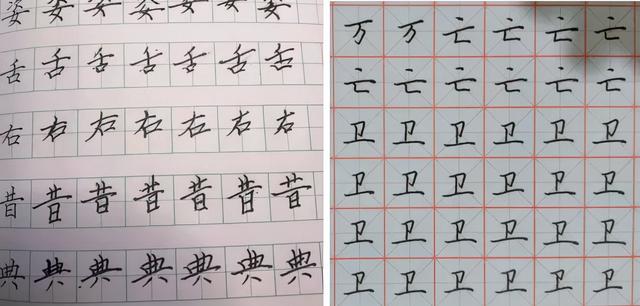 姿姿姿姿姿姿姿
舌舌舌舌舌舌舌
右右右右右右右
昔昔昔昔昔昔昔
典典典典典典典
万万亡亡亡亡
亡亡亡亡亡亡
卫卫卫卫卫卫
卫卫卫卫卫卫
卫卫卫卫卫卫
卫卫卫卫卫卫